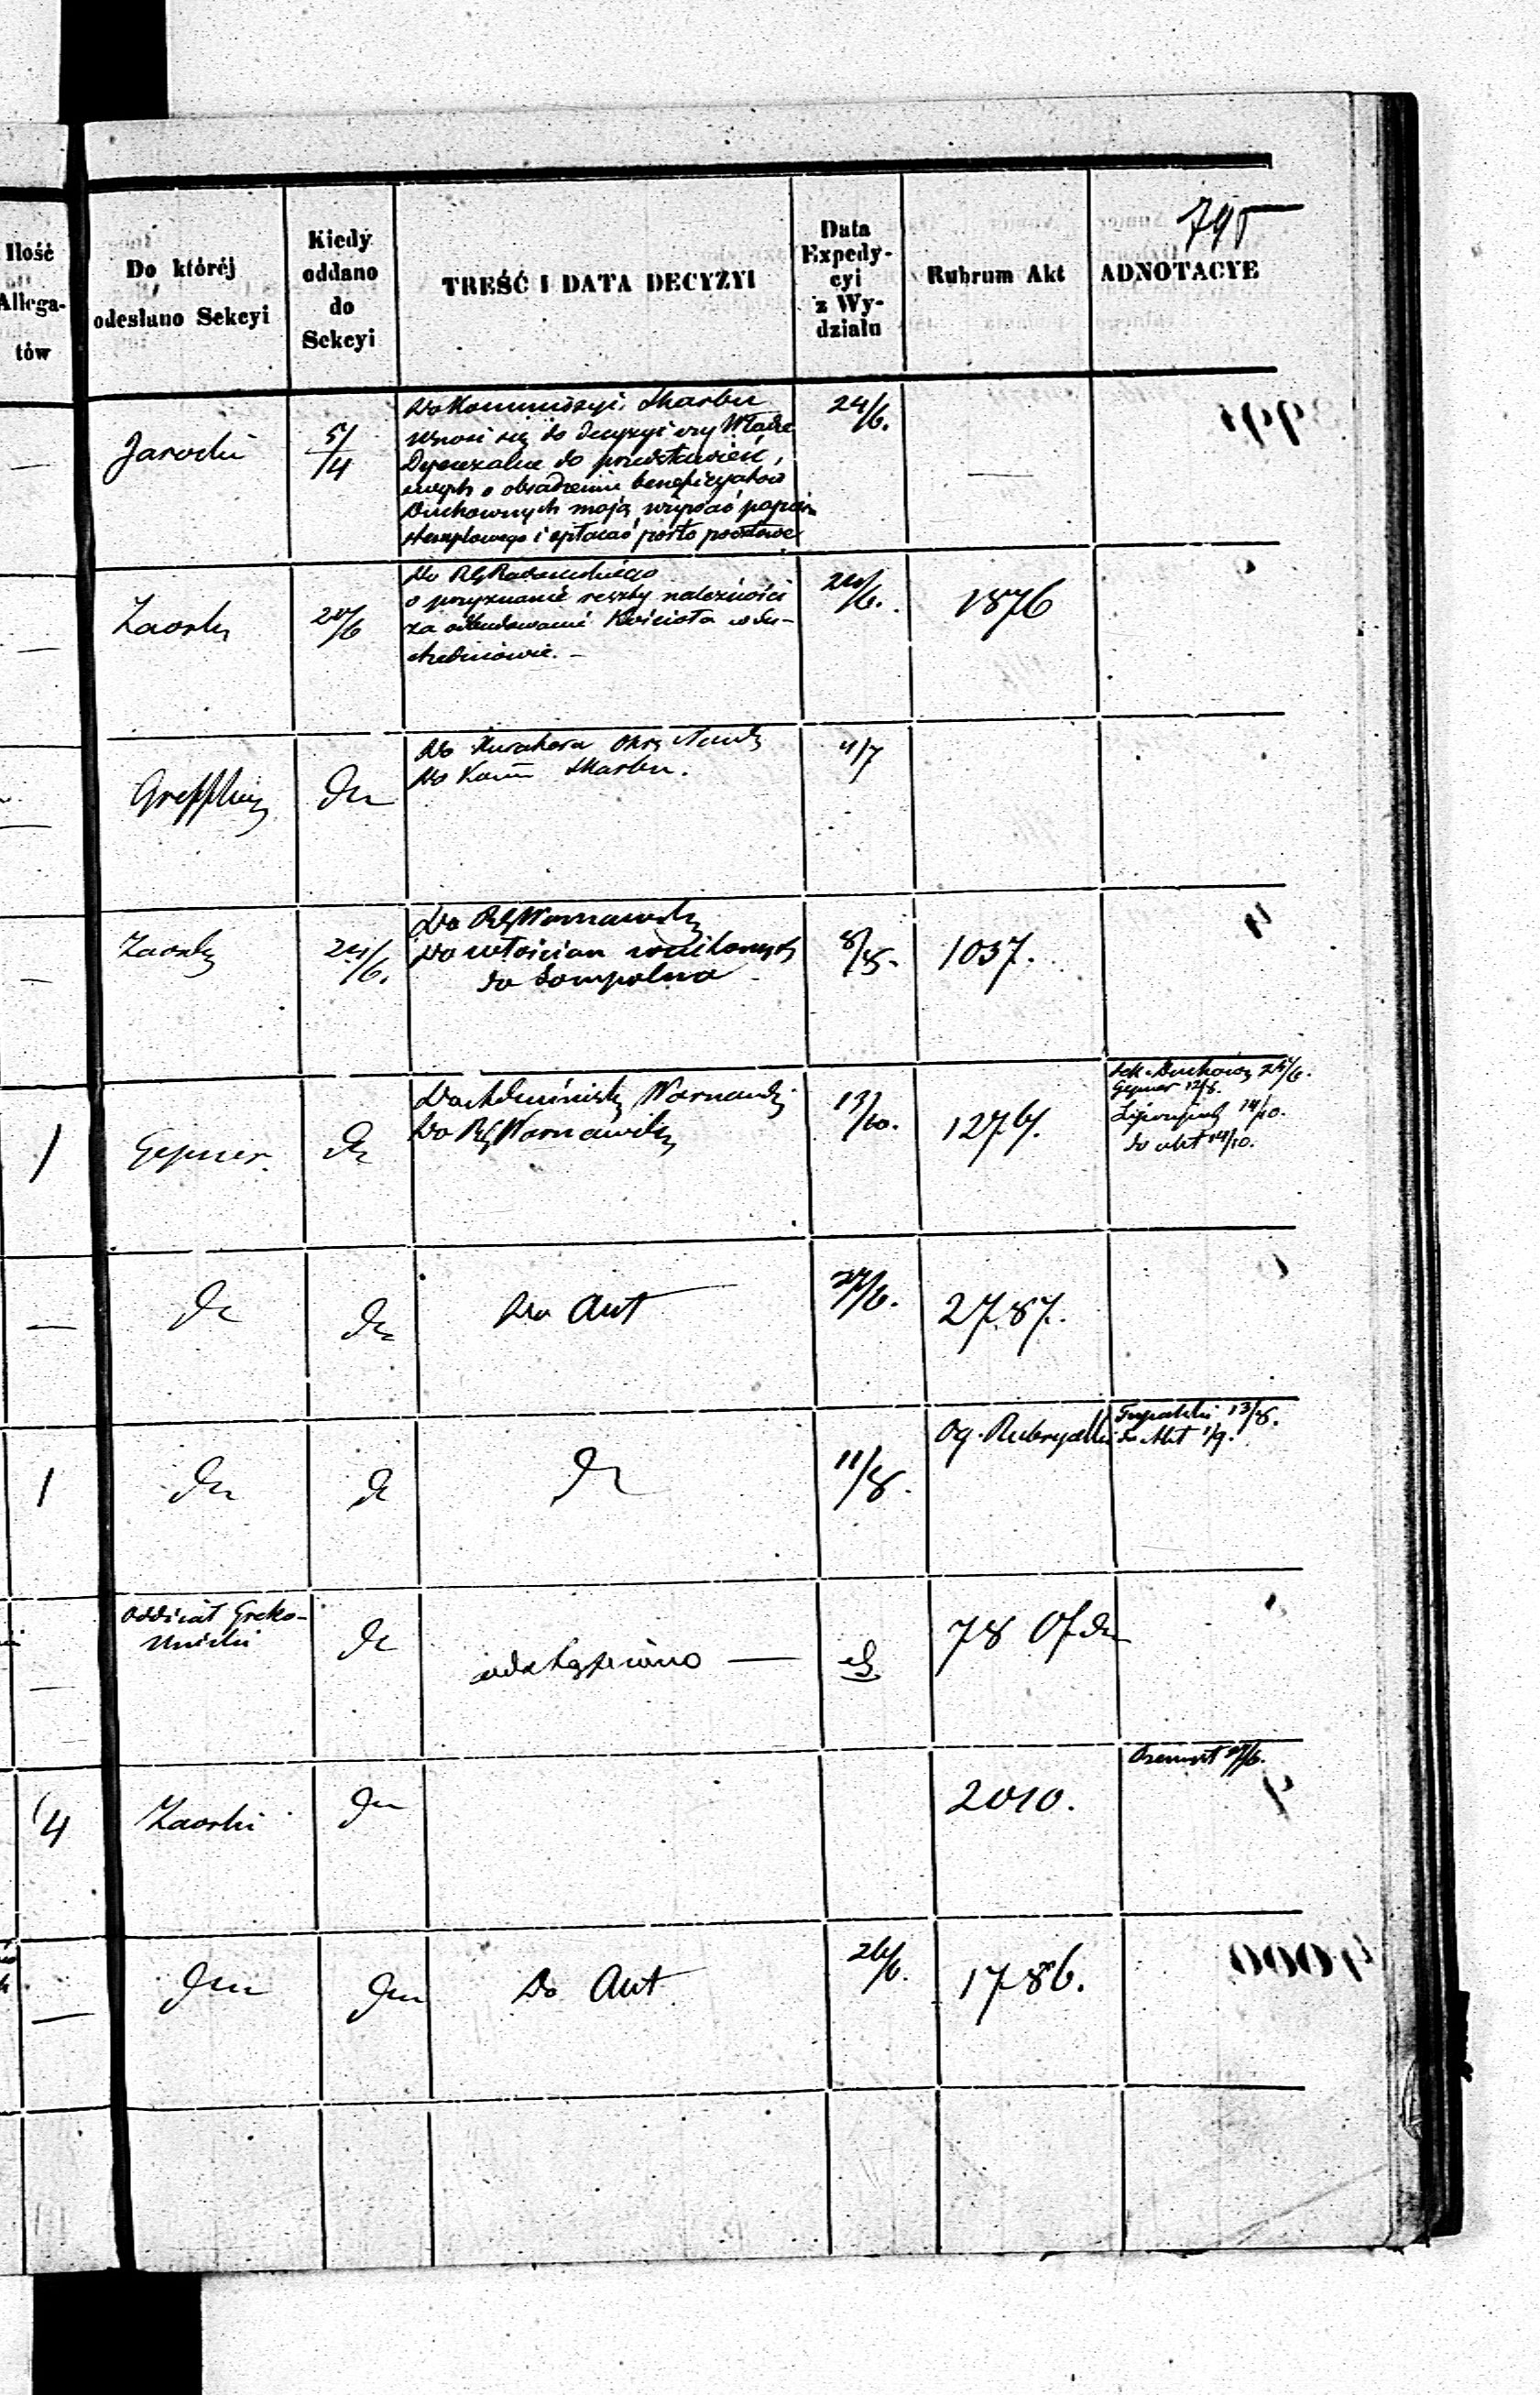 795
Ilość
Allega-
tów
Do któréj
odesłano Sekcyi
Kiedy
oddano
do
Sekcyi
TREŚĆ I DATA DECYZYI
Data
Expedy-
cyi
z Wy-
działu
Rubrum Akt
ADNOTACYE
—
Jarocki
5/4
Do Kommissyi Skarbu
wnosi się do decyzyi czy Władze
Dyecezalne do przedstawień,
o obsadzeniu beneficyjatów
Duchownych mają używać papieru
stemplowego i opłacać porto pocztowe
24/6.
—
—
Zaorski
20/6
Do RG Radomskiego
o przyznanie reszty należności
za odbudowanie Kościoła w Su-
chedniowie. —
24/6.
1876
—
dto
Do Kuratora Okr. Nauk
Do Kom Skarbu.
4/7
—
Zaorski
24/6.
Do RG Warszawsk
Do włościan wcielonych
do Sompolna
8/8.
1037.
1
Gepner.
dto
Do Administr Warszawsk
Do RG Warszawsk
13/10.
1267.
Sek. Duchow 24/6.
Gepner 12/8.
14/10.
do akt 14/10.
—
dto
dto
Do Akt
27/6.
2787.
1
dto
dto
dto
11/8.
Og. Rubrycelli
13/8.
do Akt 1/9.
—
Oddział Greko-
Unicki
dto
odstąpiono —
78 Of dto
4
Zaorski
dto
2010.
—
dto
dto
Do Akt
26/6.
1786.